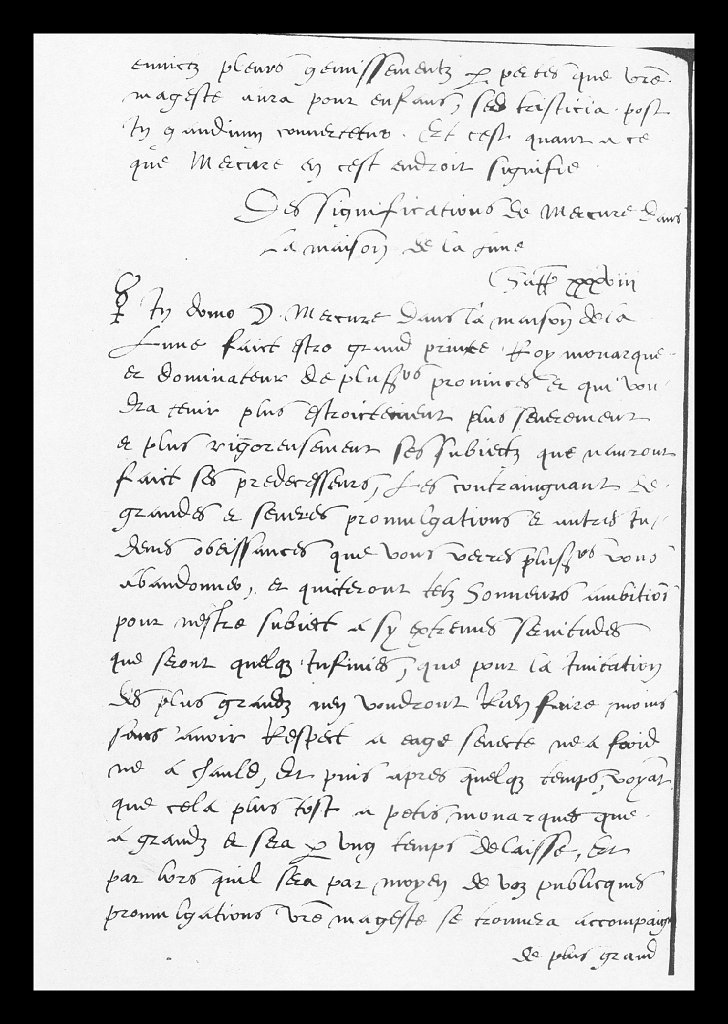 ennietz pleurs gemissementz p pertes que vre
mageste aura pour enfans, sed tristicia post
in gaudium convertetur. Et cest quant a ce
que Mercure en cest endroit signifie
Des significations de Mercure dans
la maison de la lune
Chap xxxviii
☿ In domo ☽. Mercure dans la maison de la
Lune faict estre grand prince Roy monarque
et dominateur de plusrs provinces et qui vou-
dra tenir plus estroictement plus severement
et plus rigoreusement ses subiectz que nauront
faict ses predecesseurs, Les contraingnant de
grandes et severes promulgations et autres in-
deues obeissances que vous verres plusrs vous
abandonner, et quiteront telz honneurs ambition
pour nestre subiect a sy extremes servitudes
que seront quelqz infinies, que pour la imitation
des plus grandz nen voudront Rien faire moins
sans avoir Respect a eage senecte ne a froid
ne a chauld, Et puis apres quelqz temps, voyat
que cela plus tost a petis monarques que
a grandz et sera p ung temps delaisse, Et
par lors quil sera par moyen de voz publicques
promulgations vre mageste se trouvera accompaig
de plus grand